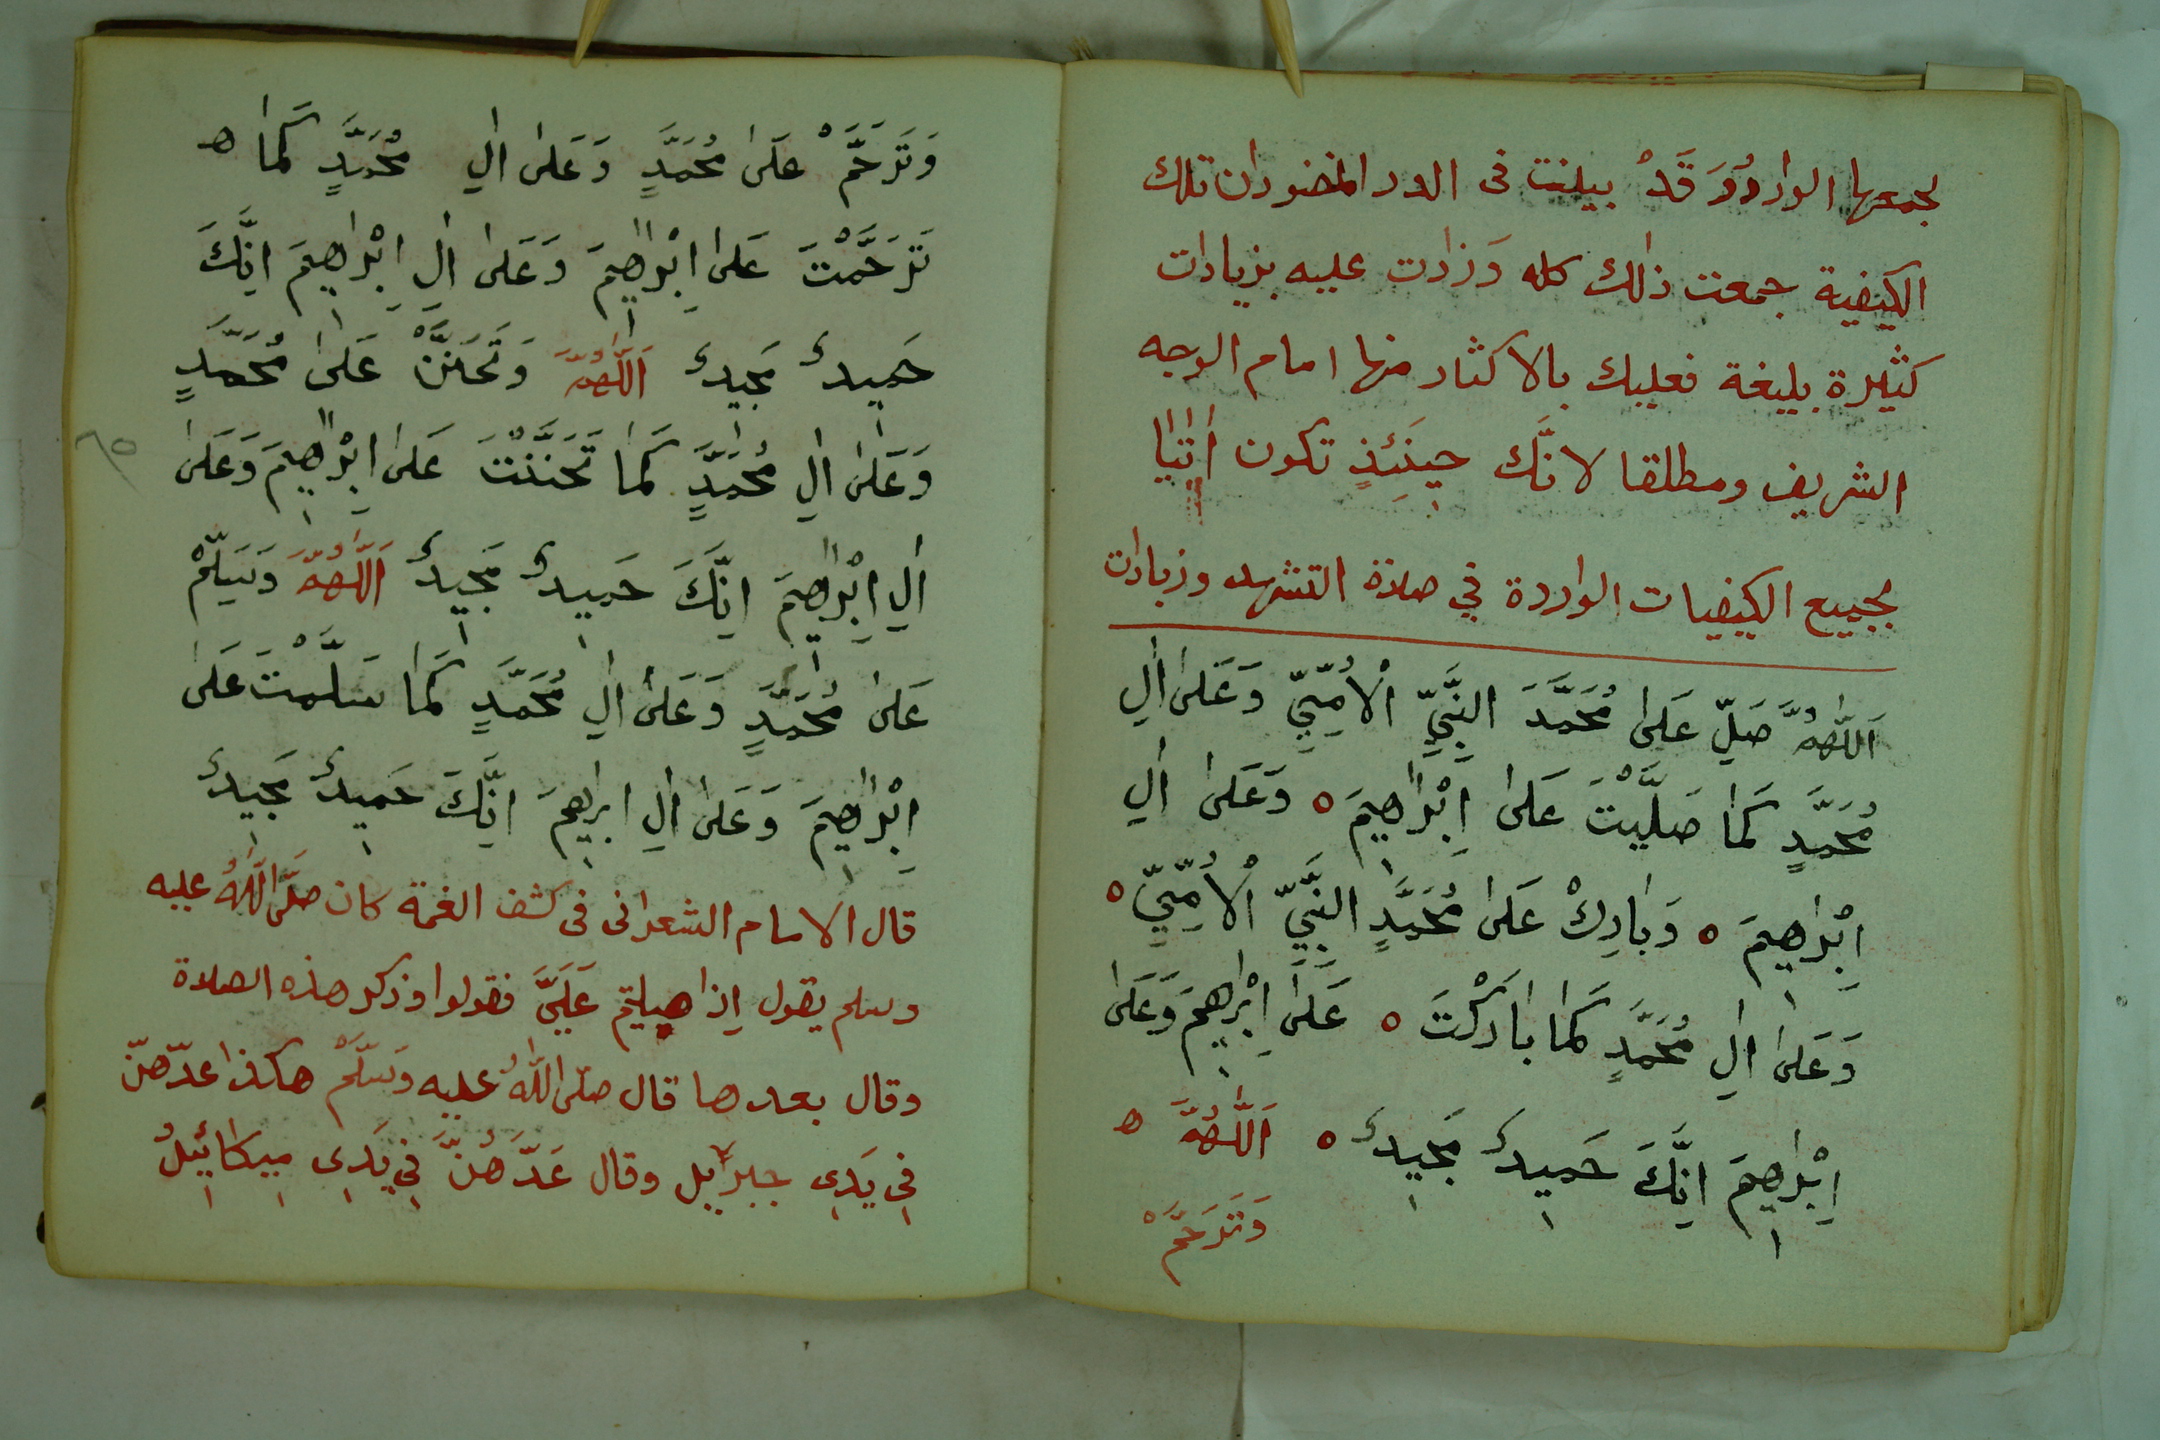 بجمعها الوارِدُوَ قَدْ بيلنت فى الدر المنضود ان تلك
الكيفية جمعت ذلك كله وَزادت عليه بزيادات
كثيرة بليغة فعليك بالاكثار منها امام الوجه
الشريف ومطلقا لانَّك حِينَئِذٍ تكون اٰتيا
بجميع الكيفيات الواردة فِي صلاة التشهد وزيادات
اَللّٰهُمَّ صَلِّ عَلىٰ مُحَمَّدَ النَّبِيِّ الْاُمِّيِّ وَعَلىٰ اٰلِ
مُحَمَّدٍ كَمٰا صَلَّيْتَ عَلىٰ اِبْرٰاهِيمَ ٥ وَعَلىٰ اٰلِ
اِبْرٰهِيمَ ٥ وَبٰارِكْ عَلىٰ مُحَمَّدٍ النَّبِيِّ الْاُمِّيِّ ٥
وَعَلىٰ اٰلِ مُحَمَّدٍ كَمٰا بٰارَكْتَ ٥ عَلَىٰ اِبْرٰهِيمَ وَعَلىٰ
اِبْرٰهِيمَ اِنَّكَ حَمِيدٌ مَجِيدٌ ٥ اَللّٰهُمَّ ه
وَتَرَحَّمْ
وَتَرَحَّمْ عَلىٰ مُحَمَّدٍ وَعَلىٰ اٰلِ مُحَمَّدٍ كَمٰا ه
تَرَحَّمْتَ عَلىٰ اِبْرٰاهِيمَ وَعَلىٰ اٰلِ اِبْرٰاهِيمَ اِنَّكَ
حَمِيدٌ مَجِيدٌ اَللّٰهُمَّ وَتَحَنَّنْ عَلىٰ مُحَمَّدٍ
وَعَلىٰ اٰلِ مُحَمَّدٍ كَمٰا تَحَنَّنْتَ عَلىٰ اِبْرٰاهِيمَ وَعَلىٰ
٦٥
اٰلِ اِبْرٰاهِيمَ اِنَّكَ حَمِيدٌ مَجِيدٌ اَللّٰهُمَّ وَسَلِّمْ
عَلىٰ مُحَمَّدٍ وَعَلىٰ اٰلِ مُحَمَّدٍ كَمٰا سَلَّمْتَ عَلىٰ
اِبْرٰاهِيمَ وَعَلىٰ اٰلِ ابرٰهيمَ اِنَّكَ حَمِيدٌ مَجِيدٌ
قال الامام الشعرانى فى كشف الغمة كان صَلَّى اللّٰهُ عليه
وسلم يقول اِذا صليتم عَلَىَّ فقولوا وذكر هذه الصلاة
وقال بعدها قال صَلّى اللّٰهُ عليه وَسَلَّمْ هكذا عدّهنّ
فِى يَدِى جبرآئيل وقال عَدَّهُنَّ فِى يَدِى مِيكائِيلُ